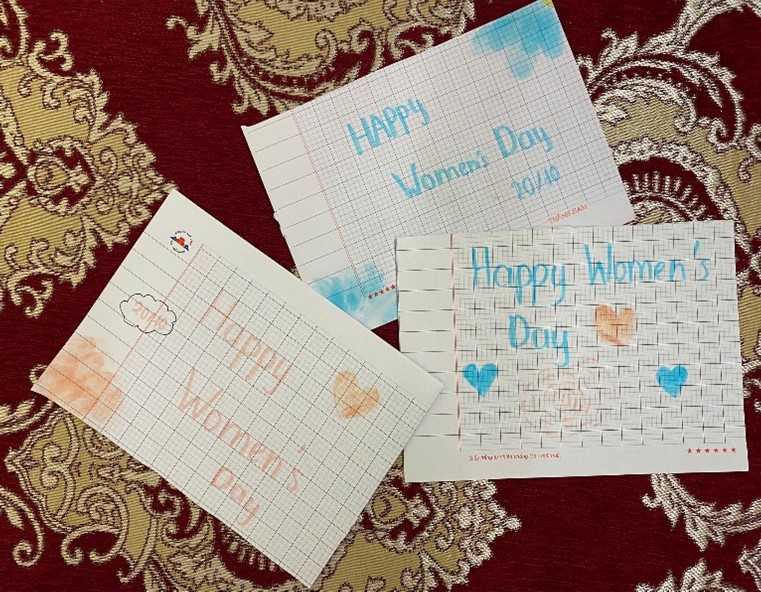 HAPPY
Women's Day
20/10
20/10
Happy
Women's
Day
Happy Women's
Day